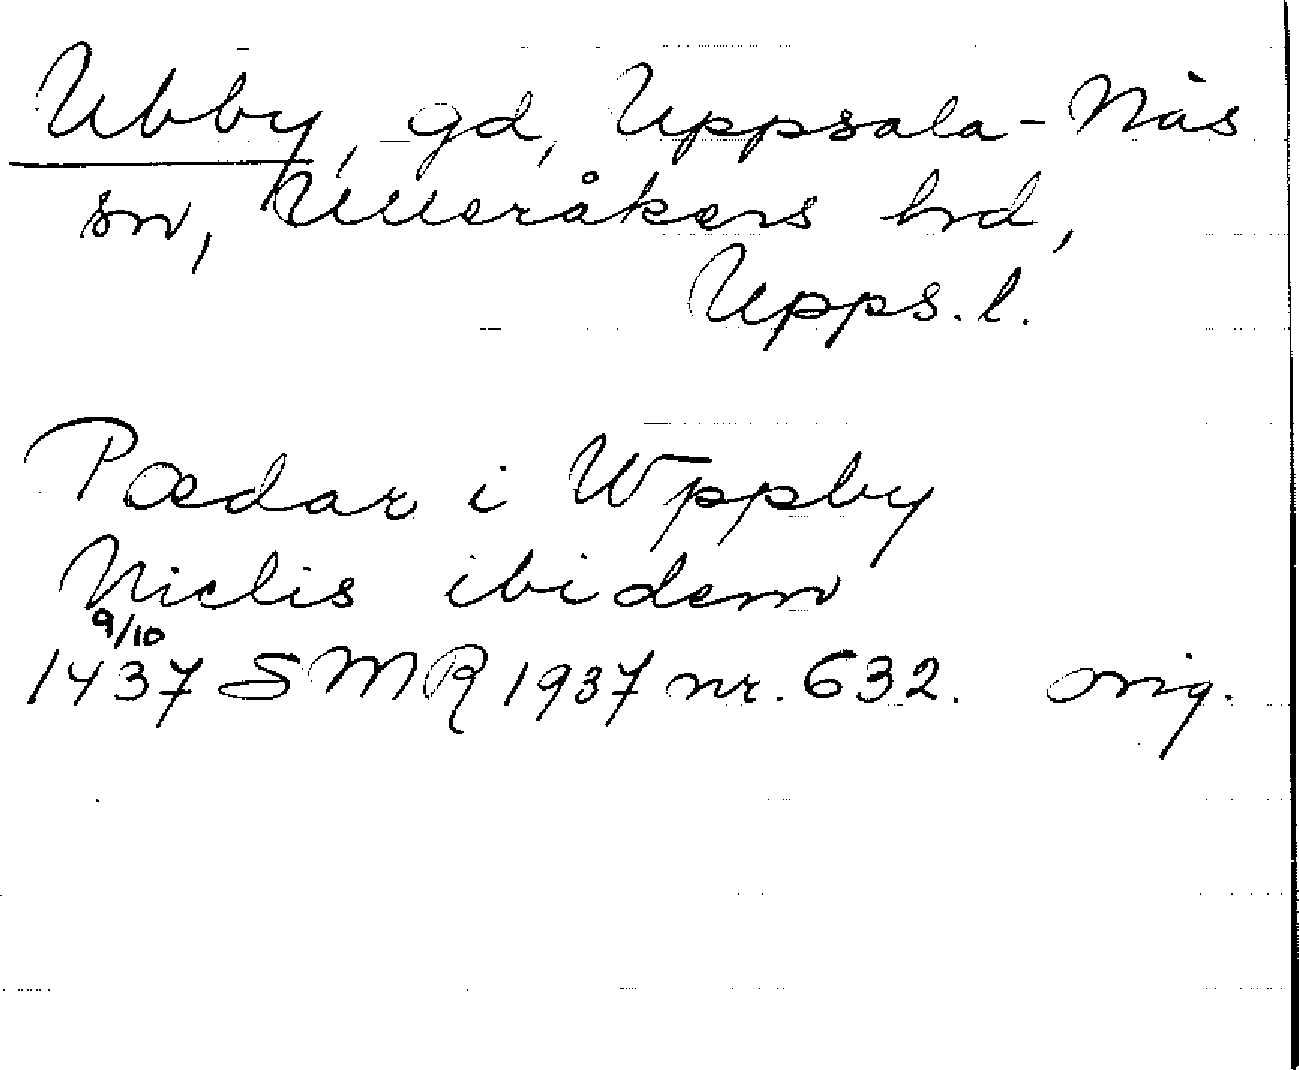 Ubby, gd, Uppsala-Näs
sn, Ulleråkers hrd,
Upps. l.
Pædar i Wppby
Niclis ibidem
9/10
1437 SMR 1937 nr. 632. orig.